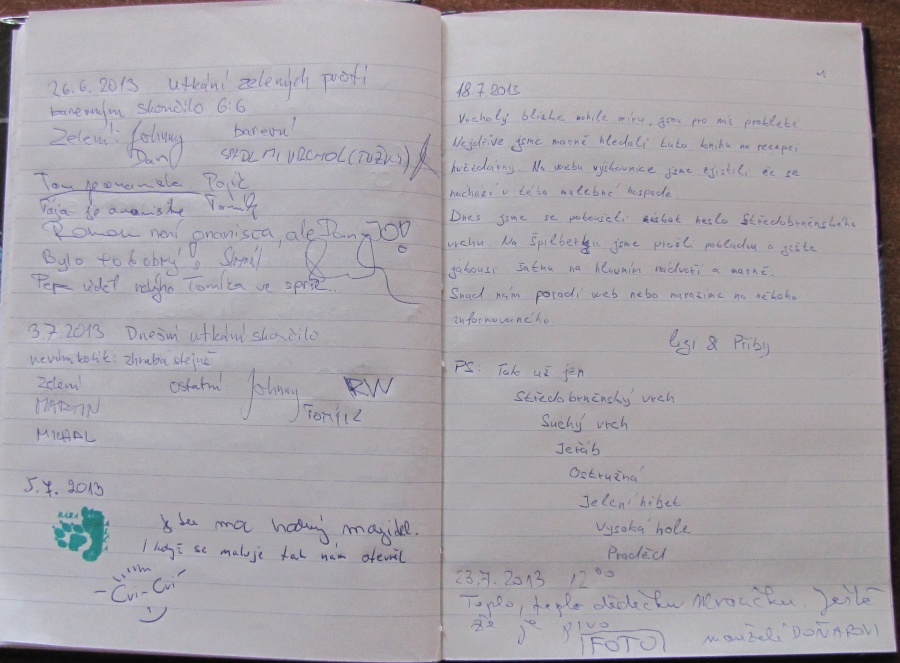 26.6.2013 utkání zelených proti
barevným skončilo 6:6
Zelení: Johnny barevní
Dan
Pajič
Tomík
Roman není onanista, ale Dan
Bylo to dobrý
Pepa viděl nahýho Tomíka ve sprše...
3.7.2013 Dnešní utkání skončilo
nevím kolik: zhruba stejně
Zelení ostatní Johnny RW
MARTIN TOMÍK
MICHAL
5.7. 2013
má hodný manžel.
I když se maluje tak nám otevřel
Cvi-Cvi
18.7.2013
Vrcholy blízké nohile míru, jsou pro nás prokleté
Nejdříve jsme marně hledali tuto knihu na recepci
hvězdárny. Na webu výškovnice jsme zjistili že se
nachází v této malebné hospodě.
Dnes jsme se pokoušeli získat heslo Středobrněnského
vrchu. Na Špilberku jsme prošli pokladnu a ještě
jakousi šatnu na hlavním nádvoří a marně.
Snad nám poradí web nebo narazíme na někoho
informovaného.
& Přiby
PS: Tak už jen
Středobrněnský vrch
Suchý vrch
Jeřáb
Ostružná
Jelení hřbet
Vysoká hole
Praděd
23.7.2013 12⁰⁰
Teplo, teplo dědečku Mrazíčku. Ještě
že je pivo
FOTO manželé DOŇAROVI